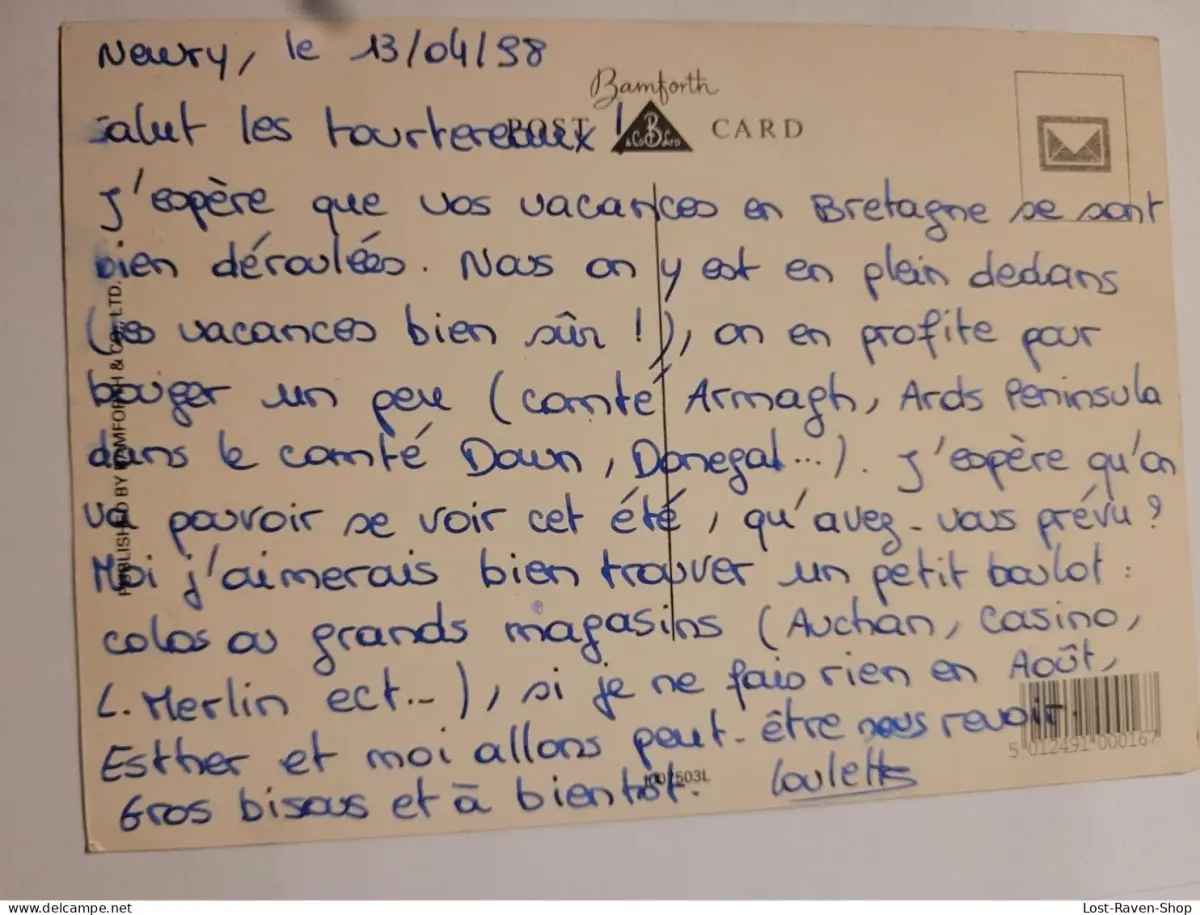 Newry, le 13/04/98
Bamforth
POST CARD
B
& Co LTD
Salut les tourtereaux !
J'espère que vos vacances en Bretagne se sont
bien déroulées. Nous on y est en plein dedans
(les vacances bien sûr !), on en profite pour
bouger un peu (comté Armagh, Ards Peninsula
dans le comté Down, Donegal...). J'espère qu'on
va pouvoir se voir cet été, qu'avez-vous prévu ?
Moi j'aimerais bien trouver un petit boulot :
colos ou grands magasins (Auchan, Casino,
L. Merlin ect...), si je ne fais rien en Août,
Esther et moi allons peut-être nous revoir.
Gros bisous et à bientôt.
PUBLISHED BY BAMFORTH & CO., LTD.
5 012491 000167
Lost-Raven-Shop
delcampe.net